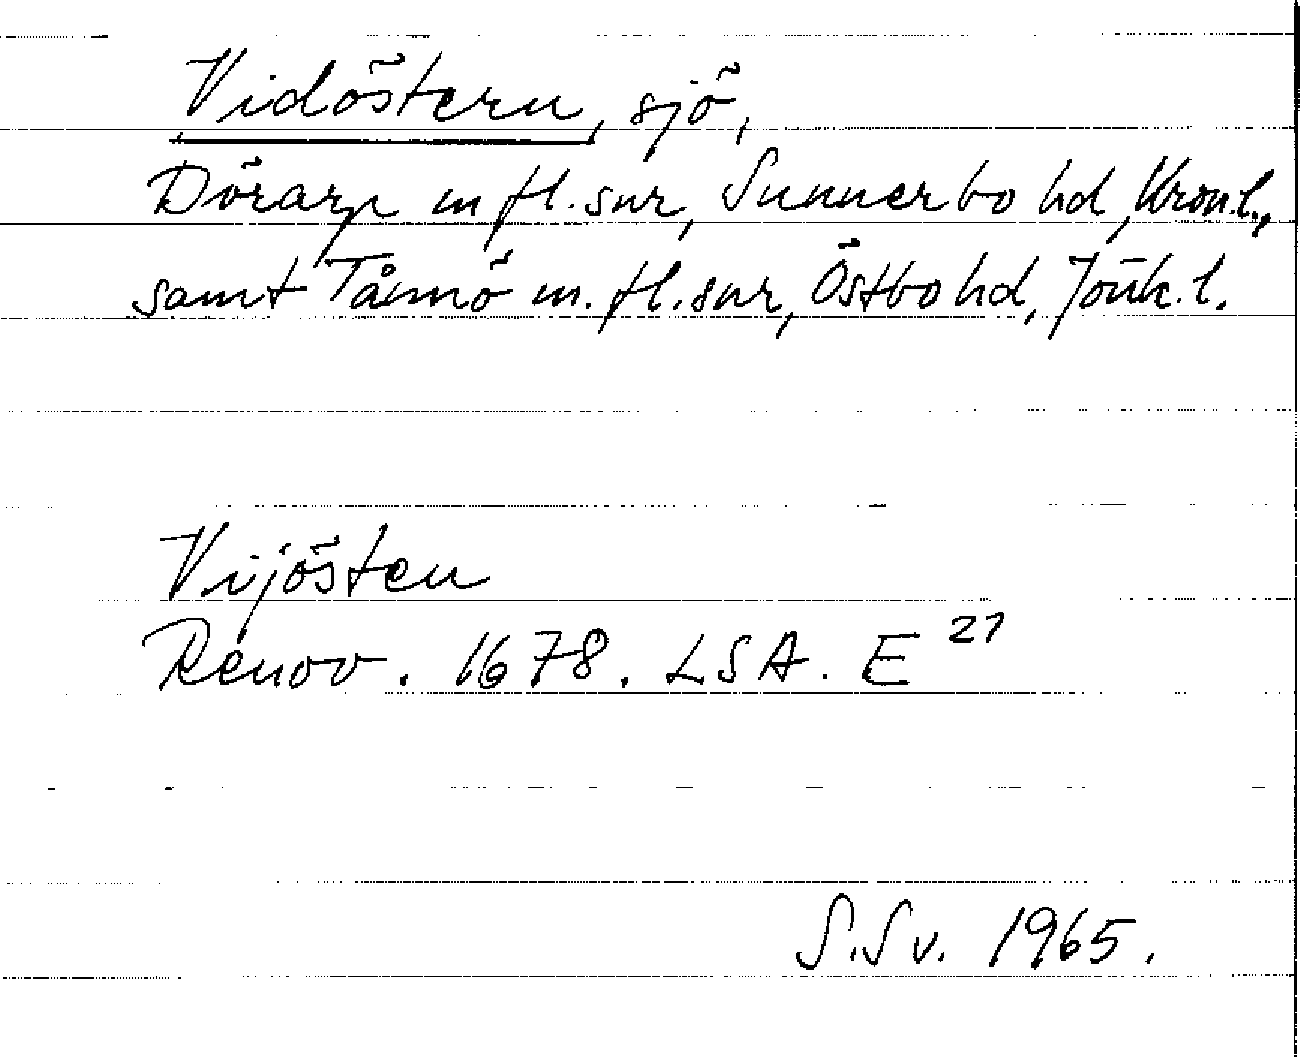 Vidöstern, sjö,
Dörarp m fl. snr, Sunnerbo hd, Kron.l.,
samt Tånnö m. fl. snr, Östbo hd, Jönk. l.
Vijösten
Renov. 1678. LSA. E 27
S.Sv. 1965.